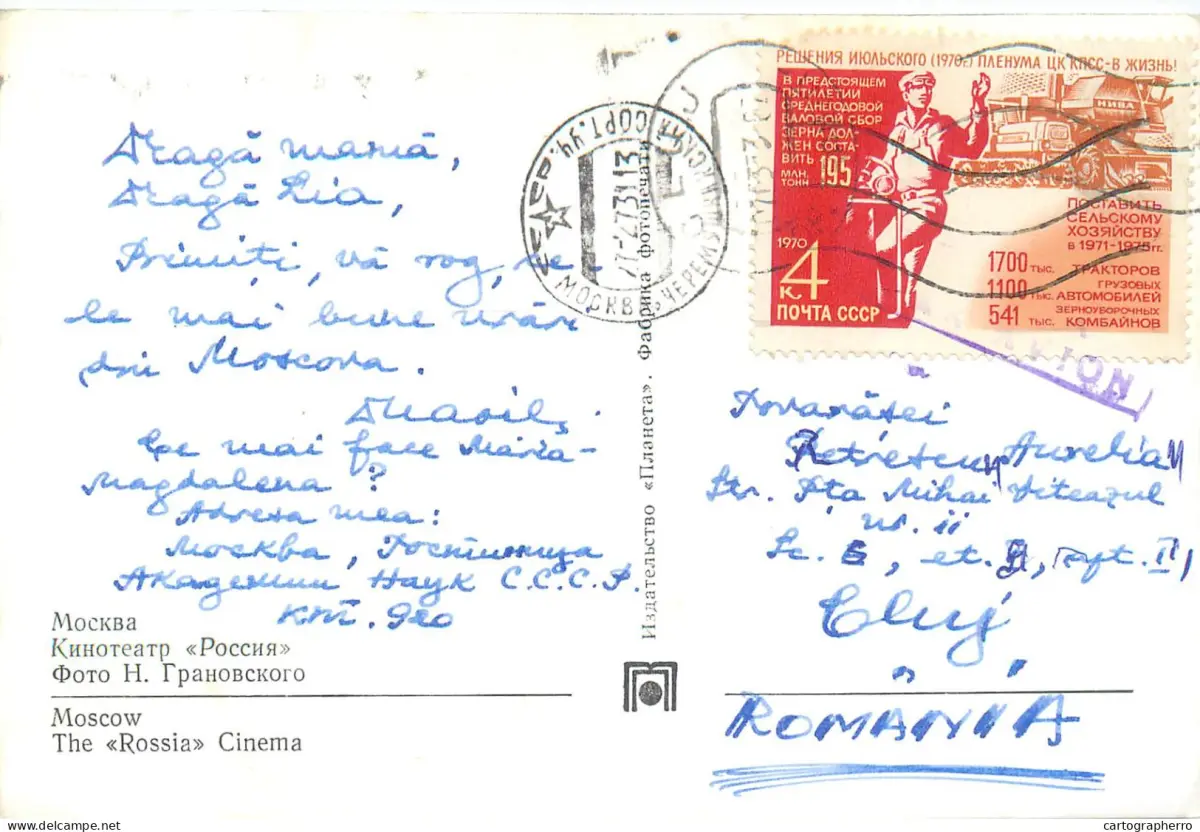 Dragă mamă,
Dragă Lia,
Primiți, vă rog, ce-
le mai bune urări
din Moscova.
Ce mai face Maria-
Magdalena?
Adresa mea:
Москва, Гостиница
Академии Наук С.С.С.Р.
кт. 920
Москва
Кинотеатр «Россия»
Фото Н. Грановского
Moscow
The «Rossia» Cinema
Издательство «Планета». Фабрика фотопечати
МОСКВА
СОРТ. УЧ.
27-2-73 13
РЕШЕНИЯ ИЮЛЬСКОГО (1970г.) ПЛЕНУМА ЦК КПСС-В ЖИЗНЬ!
В ПРЕДСТОЯЩЕМ
ПЯТИЛЕТИИ
СРЕДНЕГОДОВОЙ
ВАЛОВОЙ СБОР
ЗЕРНА ДОЛ-
ЖЕН СОСТА-
ВИТЬ 195
МЛН.
ТОНН
НИВА
1970
4
К
ПОЧТА СССР
ПОСТАВИТЬ
СЕЛЬСКОМУ
ХОЗЯЙСТВУ
в 1971-1975 гг.
1700 тыс. ТРАКТОРОВ
1100 тыс. ГРУЗОВЫХ АВТОМОБИЛЕЙ
541 тыс. ЗЕРНОУБОРОЧНЫХ КОМБАЙНОВ
Tovarășei
Petrescu Aurelia
Str. Pța Mihai Viteazul
nr. 11
Sc. , et. , apt. 11
Cluj
ROMÂNIA
postcards-online.net
cartographerro